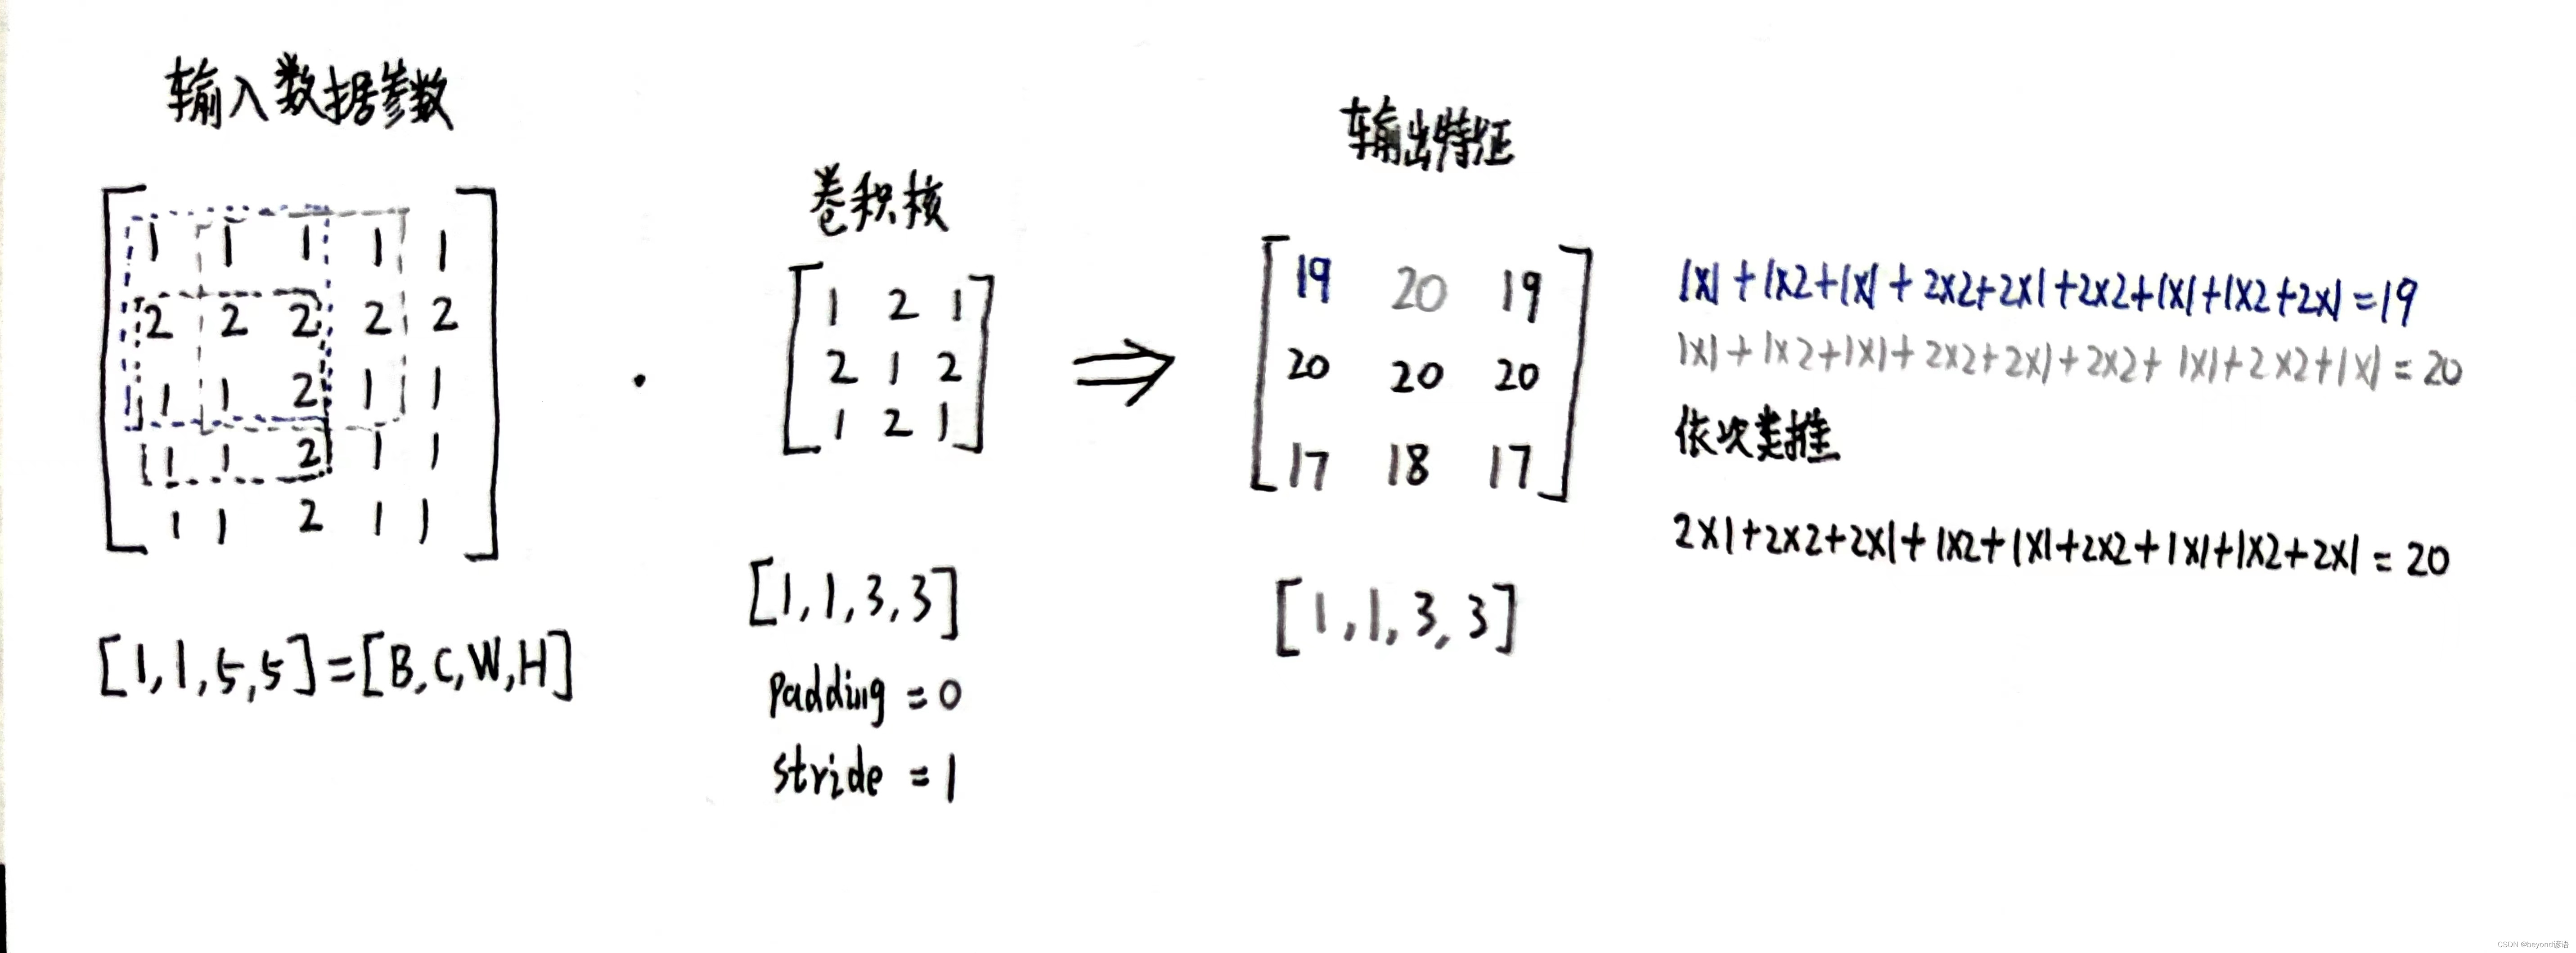 输入数据参数
1 1 1 1 1
2 2 2 2 2
1 1 2 1 1
1 1 2 1 1
1 1 2 1 1
[1,1,5,5]=[B,C,W,H]
·
卷积核
1 2 1
2 1 2
1 2 1
[1,1,3,3]
padding=0
stride=1
⇒
输出特征
19 20 19
20 20 20
17 18 17
[1,1,3,3]
1x1+1x2+1x1+2x2+2x1+2x2+1x1+1x2+2x1=19
1x1+1x2+1x1+2x2+2x1+2x2+1x1+2x2+1x1=20
依次类推
2x1+2x2+2x1+1x2+1x1+2x2+1x1+1x2+2x1=20
CSDN @beyond谚语